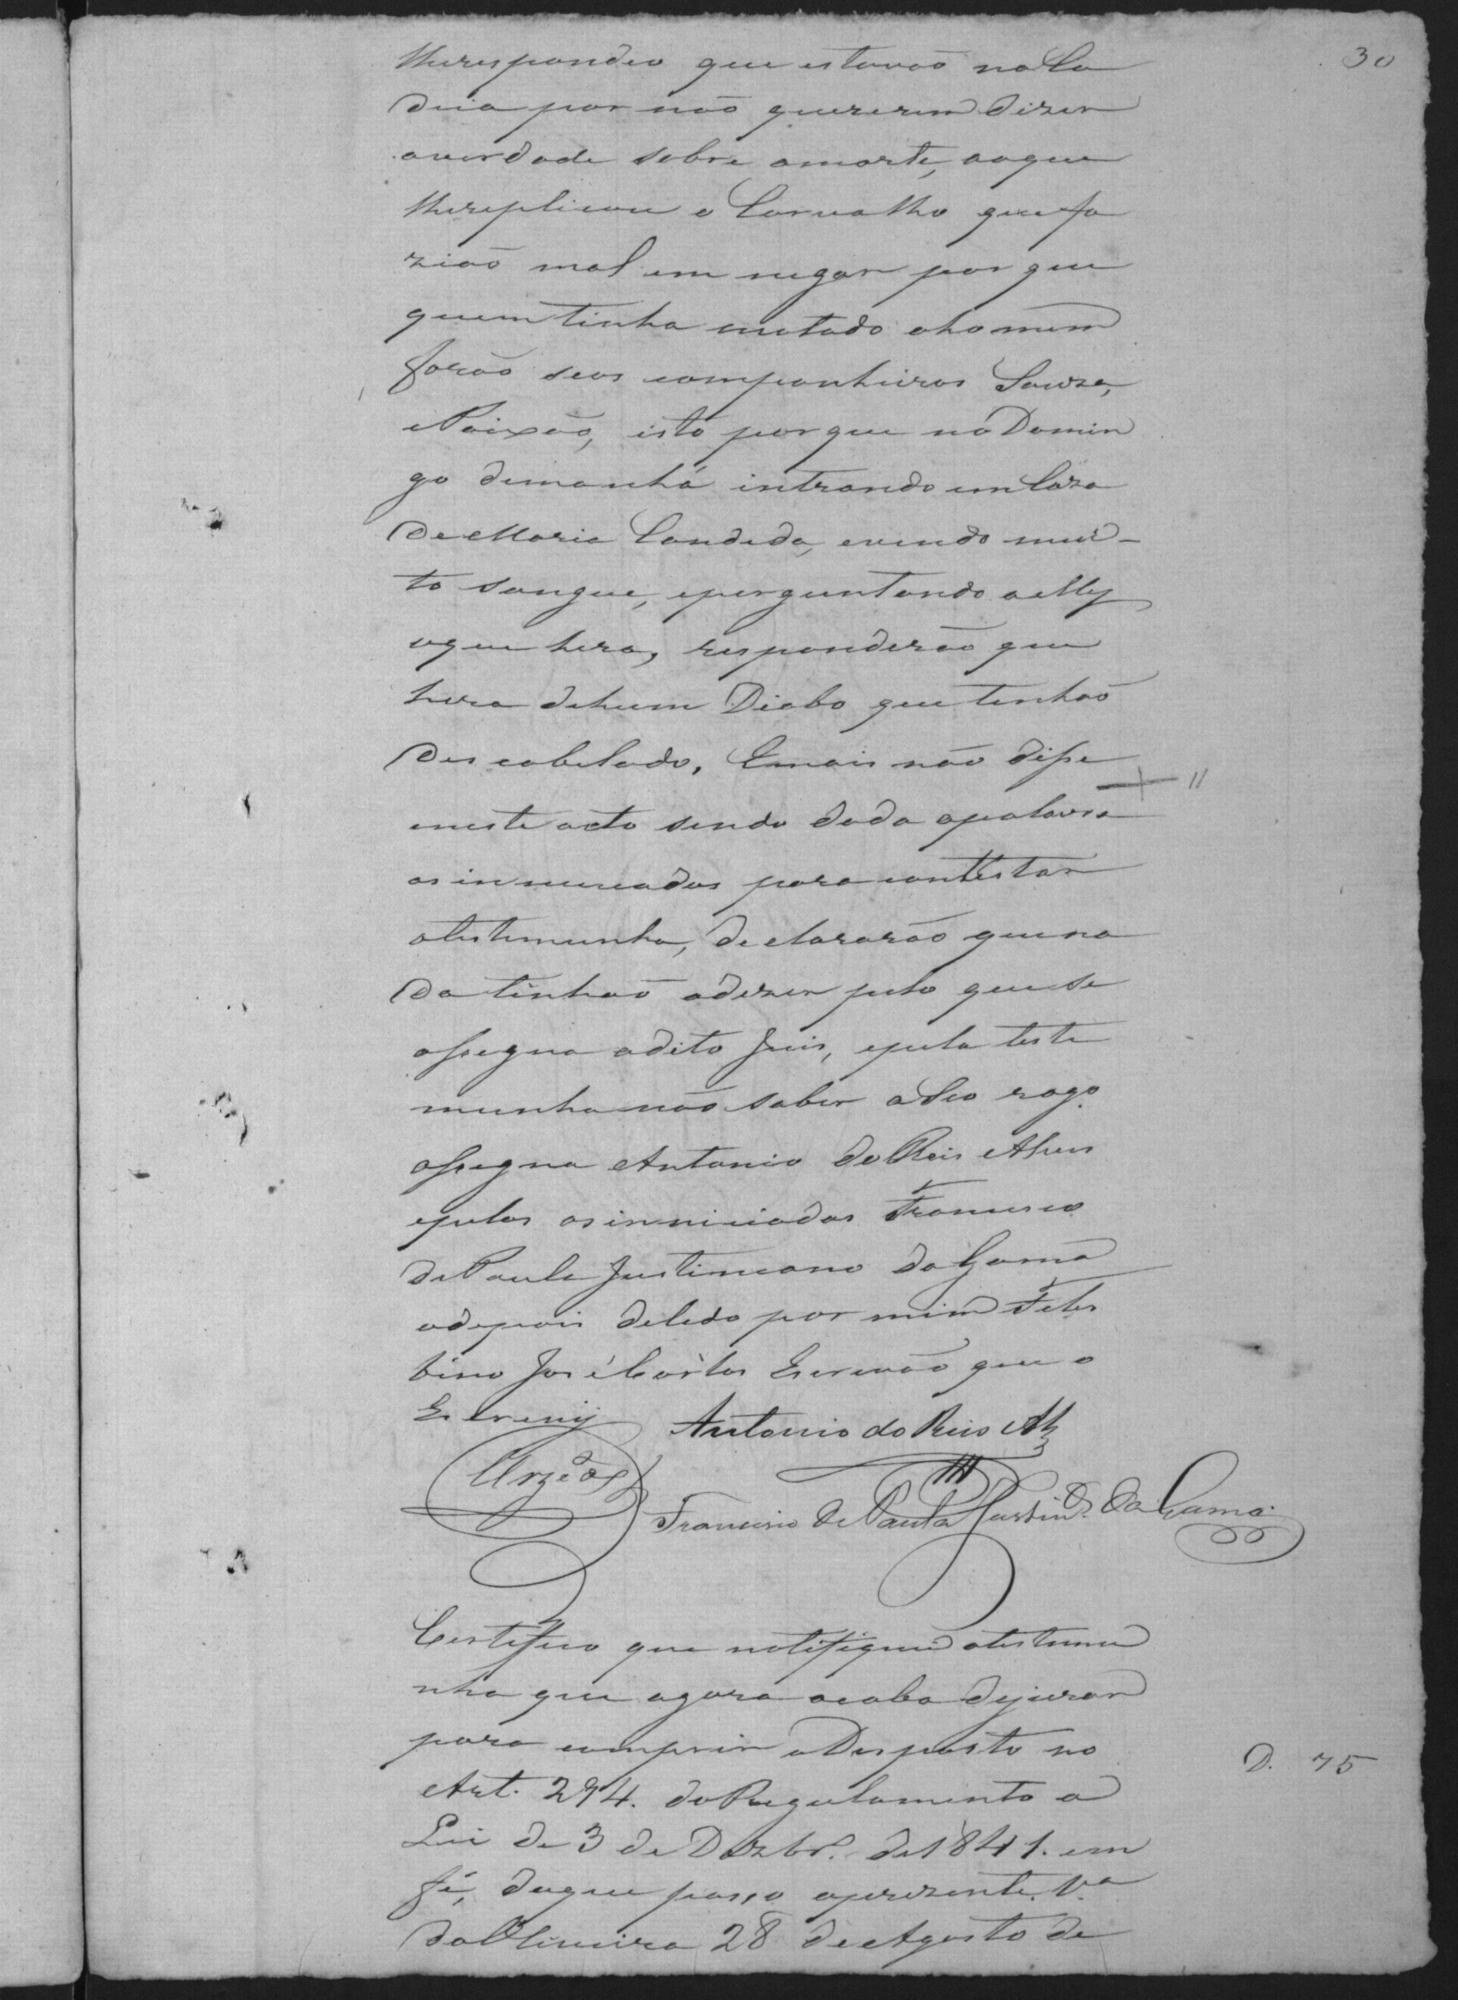 30
lherespondeo que estavaõ na Ca
deia por naõ quererem dizer
averdade sobre amorte, aoque
lhereplicou o Carvalho que fa
ziaõ mal em negar por que
quem tinha matado ohomem
foraõ seos companheiros Souza,
ePaixaõ, isto porque no Domin
go demanhá intrando em Caza
de Maria Candida, evendo mui-
to sangue, eperguntando a elles
oque hera, responderaõ que
hera dehum Diabo que tinhaõ
descabelado. Emais naõ disse
eneste acto sendo dada apalavra
os innuciados para contestar
atestimunha, declararaõ que na
da tinhaõ adizer pelo que se
assegna odito Juis, epela teste
munha naõ saber aSeo rogo
assegna Antonio do Reis Alves
epelos os inniciados Francisco
de Paula Justiniano da Gama
odepois delido por mim Felis
bino José Cortes Escrivaõ que o
Escrevij
Antonio do Reis Alz
Arzedo
Francisco de Paula Justinº. da Gama.
Certefico que notifiquei atestimu
nha que agora acaba dejurar
para comprir oDesposto no
Art. 294. do Regulamento a
D. 75
Lei de 3 de Dezbrº. de 1841. em
fé, doque passo aprezente. Vª
da Oliveira 28 de Agosto de